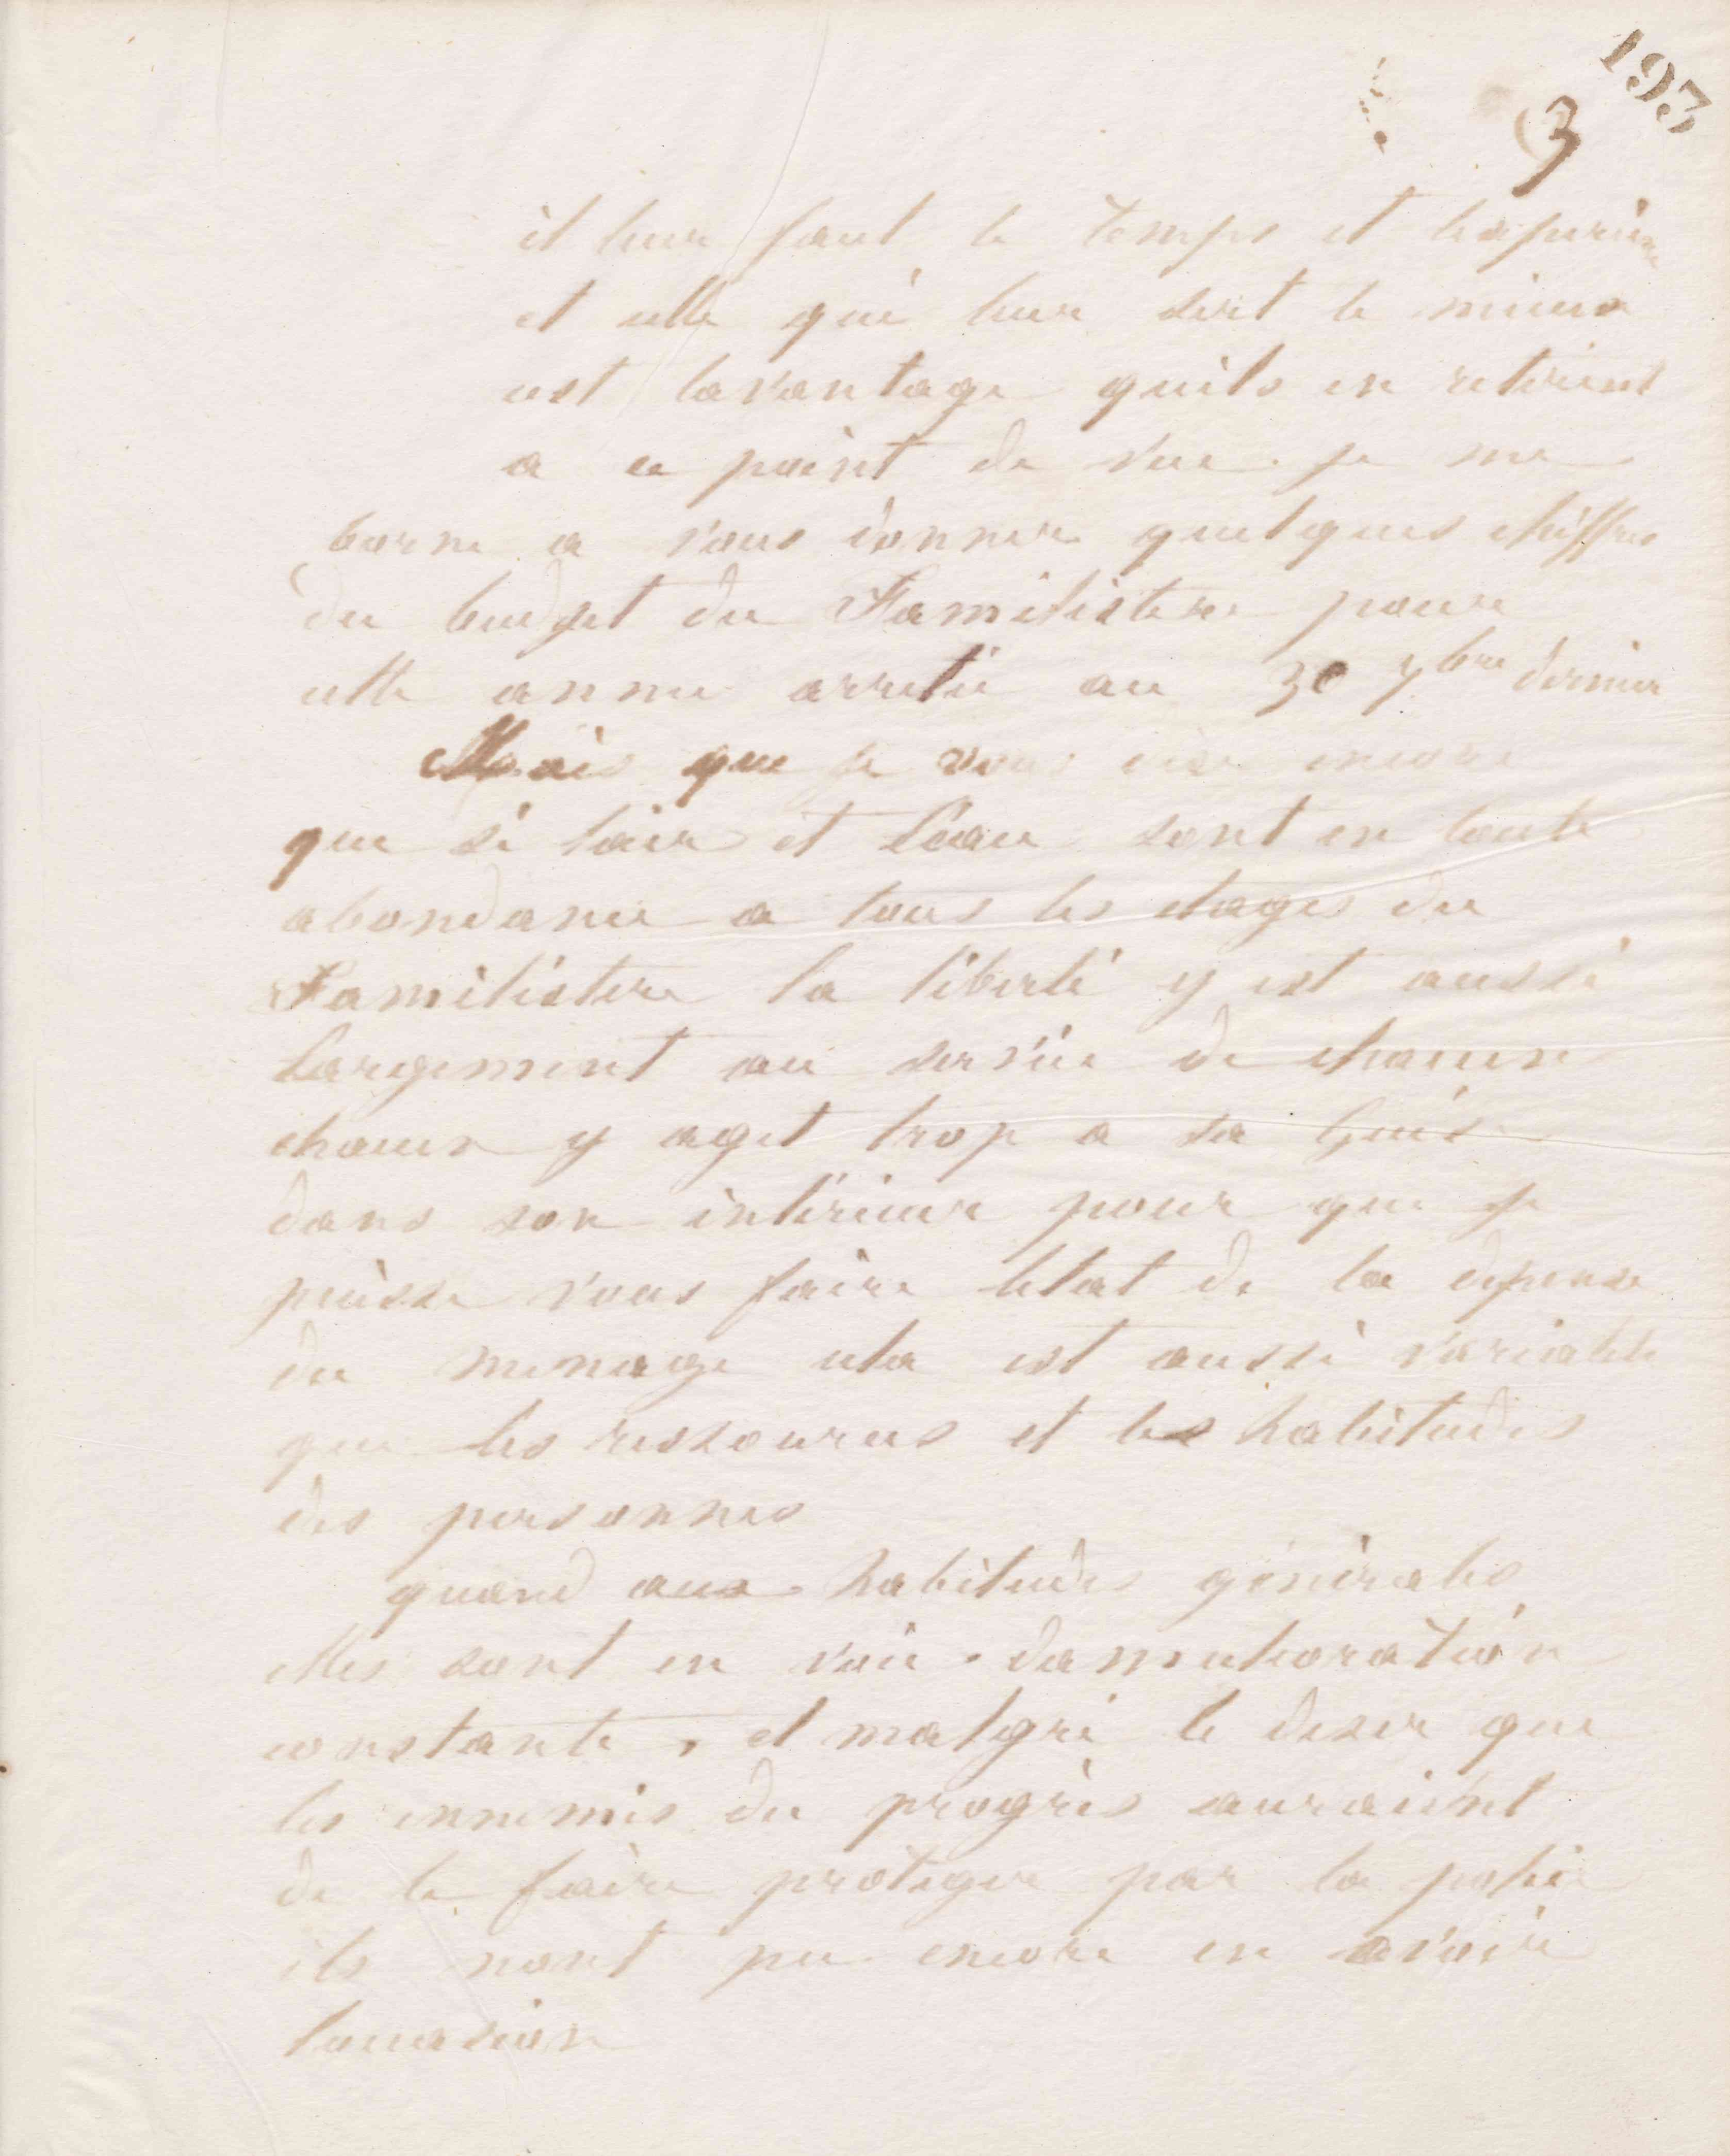 193
3
il leur faut le temps et lexperience
et celle qui leur sert le mieux
est lavantage quils en retirent
a ce point de vue je me
borne a vous donner quelques chiffres
du budget du Familistere pour
cette annee arretée au 30 7bre dernier
Mais que je vous dise encore
que si lair et leau sont en toute
abondance a tous les etages du
Familistere la liberté y est aussi
largement au service de chacun
chacun y agit trop a sa Guise
dans son intérieur pour que je
puisse vous faire letat de la depense
du menage cela est aussi variable
que les ressources et les habitudes
des personnes
quand aux habitudes générales
elles sont en voie damelioration
constante, et malgré le desir que
les ennemis du progrès auraient
de le faire proteger par la police
ils nont pu encore en avoir
loccasion